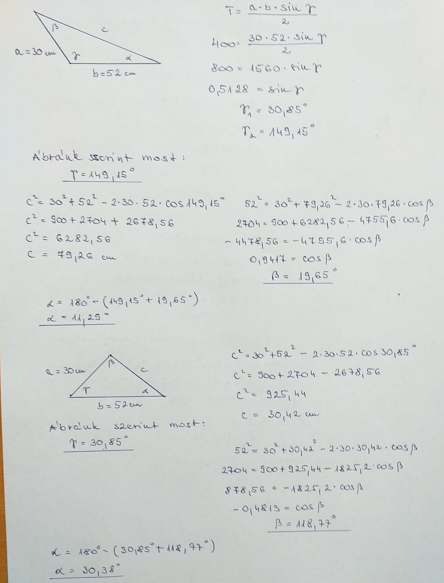 β
c
a=30cm
γ
α
b=52cm
T = a·b·sin γ / 2
400 = 30·52·sin γ / 2
800 = 1560·sin γ
0,5128 = sin γ
γ₁ = 30,85°
γ₂ = 149,15°
Ábránk szerint most:
γ = 149,15°
c² = 30² + 52² - 2·30·52·cos 149,15°
c² = 900 + 2704 + 2678,56
c² = 6282,56
c = 79,26 cm
52² = 30² + 79,26² - 2·30·79,26·cos β
2704 = 900 + 6282,56 - 4755,6·cos β
-4478,56 = -4755,6·cos β
0,9417 = cos β
β = 19,65°
α = 180° - (149,15° + 19,65°)
α = 11,29°
a=30cm
β
c
γ
α
b=52cm
Ábránk szerint most:
γ = 30,85°
c² = 30² + 52² - 2·30·52·cos 30,85°
c² = 900 + 2704 - 2678,56
c² = 925,44
c = 30,42 cm
52² = 30² + 30,42² - 2·30·30,42·cos β
2704 = 900 + 925,44 - 1825,2·cos β
878,56 = -1825,2·cos β
-0,4813 = cos β
β = 118,77°
α = 180° - (30,85° + 118,77°)
α = 30,38°